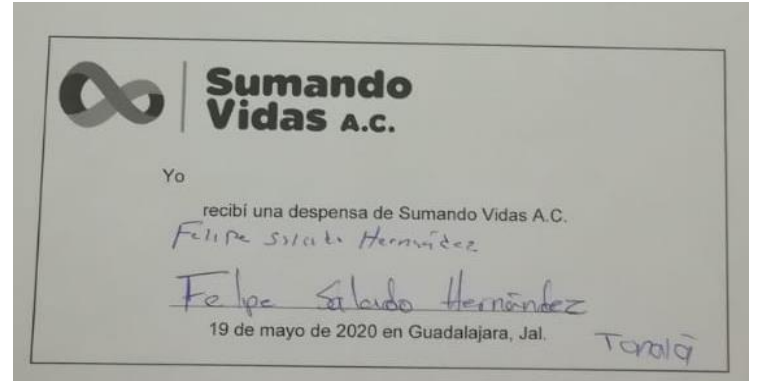 Sumando
Vidas A.C.
Yo
recibí una despensa de Sumando Vidas A.C.
Felipe Hernández
Felpe Salcido Hernández
19 de mayo de 2020 en Guadalajara, Jal.
Tonalá